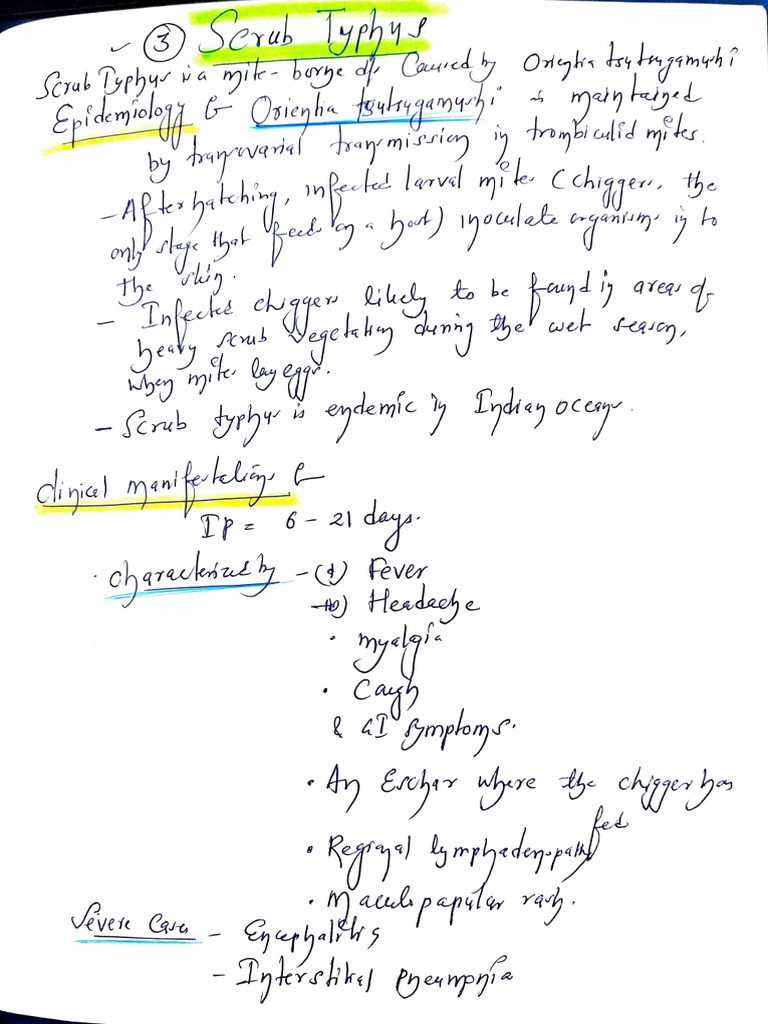 ③ Scrub Typhus
Scrub Typhus is a mite-borne ds Caused by Orientia tsutsugamushi
Epidemiology Orientia tsutsugamushi is maintained
by transovarial transmission in trombiculid mites.
- After hatching, infected larval mites (chiggers, the
only stage that feeds on a host) inoculate organisms in to
the skin.
- Infected chiggers likely to be found in areas of
heavy scrub vegetation during the wet season,
when mites lay eggs.
- Scrub typhus is endemic in Indian oceans.
Clinical manifestations
IP = 6 - 21 days.
· characterized by - Fever
Headache
· myalgia
· Cough
& GI symptoms.
· An Eschar where the chigger has
fed
· Regional lymphadenopathy
· Maculopapular rash.
Severe Cases - Encephalitis
- Interstitial pneumonia